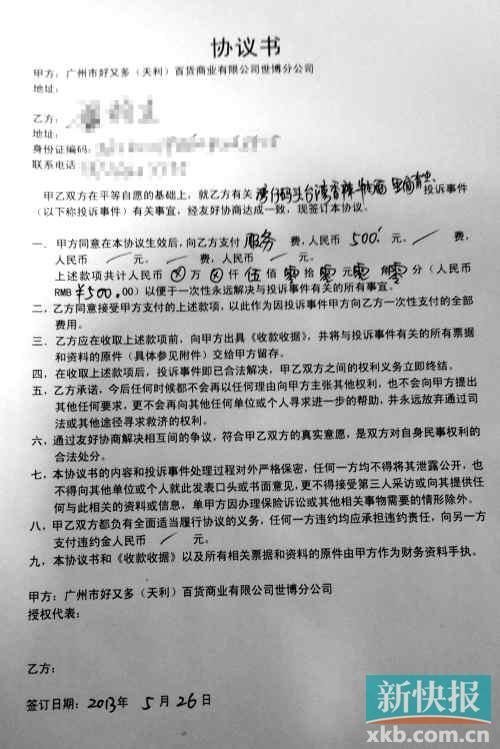 协议书
甲方：广州市好又多（天利）百货商业有限公司世博分公司
地址：
乙方：
地址：
身份证编码：
联系电话
甲乙双方在平等自愿的基础上，就乙方有关 湾仔码头台湾香辣 投诉事件
（以下称投诉事件）有关事宜，经友好协商达成一致，现签订本协议。
一、甲方同意在本协议生效后，向乙方支付 服务 费，人民币 500 元、 / 费，
人民币 / 元。 / 费，人民币 / 元。
上述款项共计人民币 ⊗ 万 ⊗ 仟 伍 佰 零 拾 零 元 零 角 零 分（人民币
RMB ¥500.00）以便于一次性永远解决与投诉事件有关的所有事宜。
二、乙方同意接受甲方支付的上述款项，以此作为因投诉事件甲方向乙方一次性支付的全部
费用。
三、乙方应在收取上述款项前，向甲方出具《收款收据》，并将与投诉事件有关的所有票据
和资料的原件（具体参见附件）交给甲方留存。
四、在收取上述款项后，投诉事件即已合法解决，甲乙双方之间的权利义务立即终结。
五、乙方承诺，今后任何时候都不会再以任何理由向甲方主张其他权利，也不会向甲方提出
其他任何要求，更不会再向其他任何单位或个人寻求进一步的帮助，并永远放弃通过司
法或其他途径寻求救济的权利。
六、通过友好协商解决相互间的争议，符合甲乙双方的真实意愿，是双方对自身民事权利的
合法处分。
七、本协议书的内容和投诉事件处理过程对外严格保密，任何一方均不得将其泄露公开，也
不得向其他单位或个人就此发表口头或书面意见，更不得接受第三人采访或向其提供任
何与此相关的资料或信息，单甲方因办理保险诉讼或其他相关事物需要的情形除外。
八、甲乙双方都负有全面适当履行协议的义务，任何一方违约均应承担违约责任，向另一方
支付违约金人民币 / 元。
九、本协议书和《收款收据》以及所有相关票据和资料的原件由甲方作为财务资料手执。
甲方：广州市好又多（天利）百货商业有限公司世博分公司
授权代表：
乙方：
签订日期：2013年 5月26日
新快报
xkb.com.cn